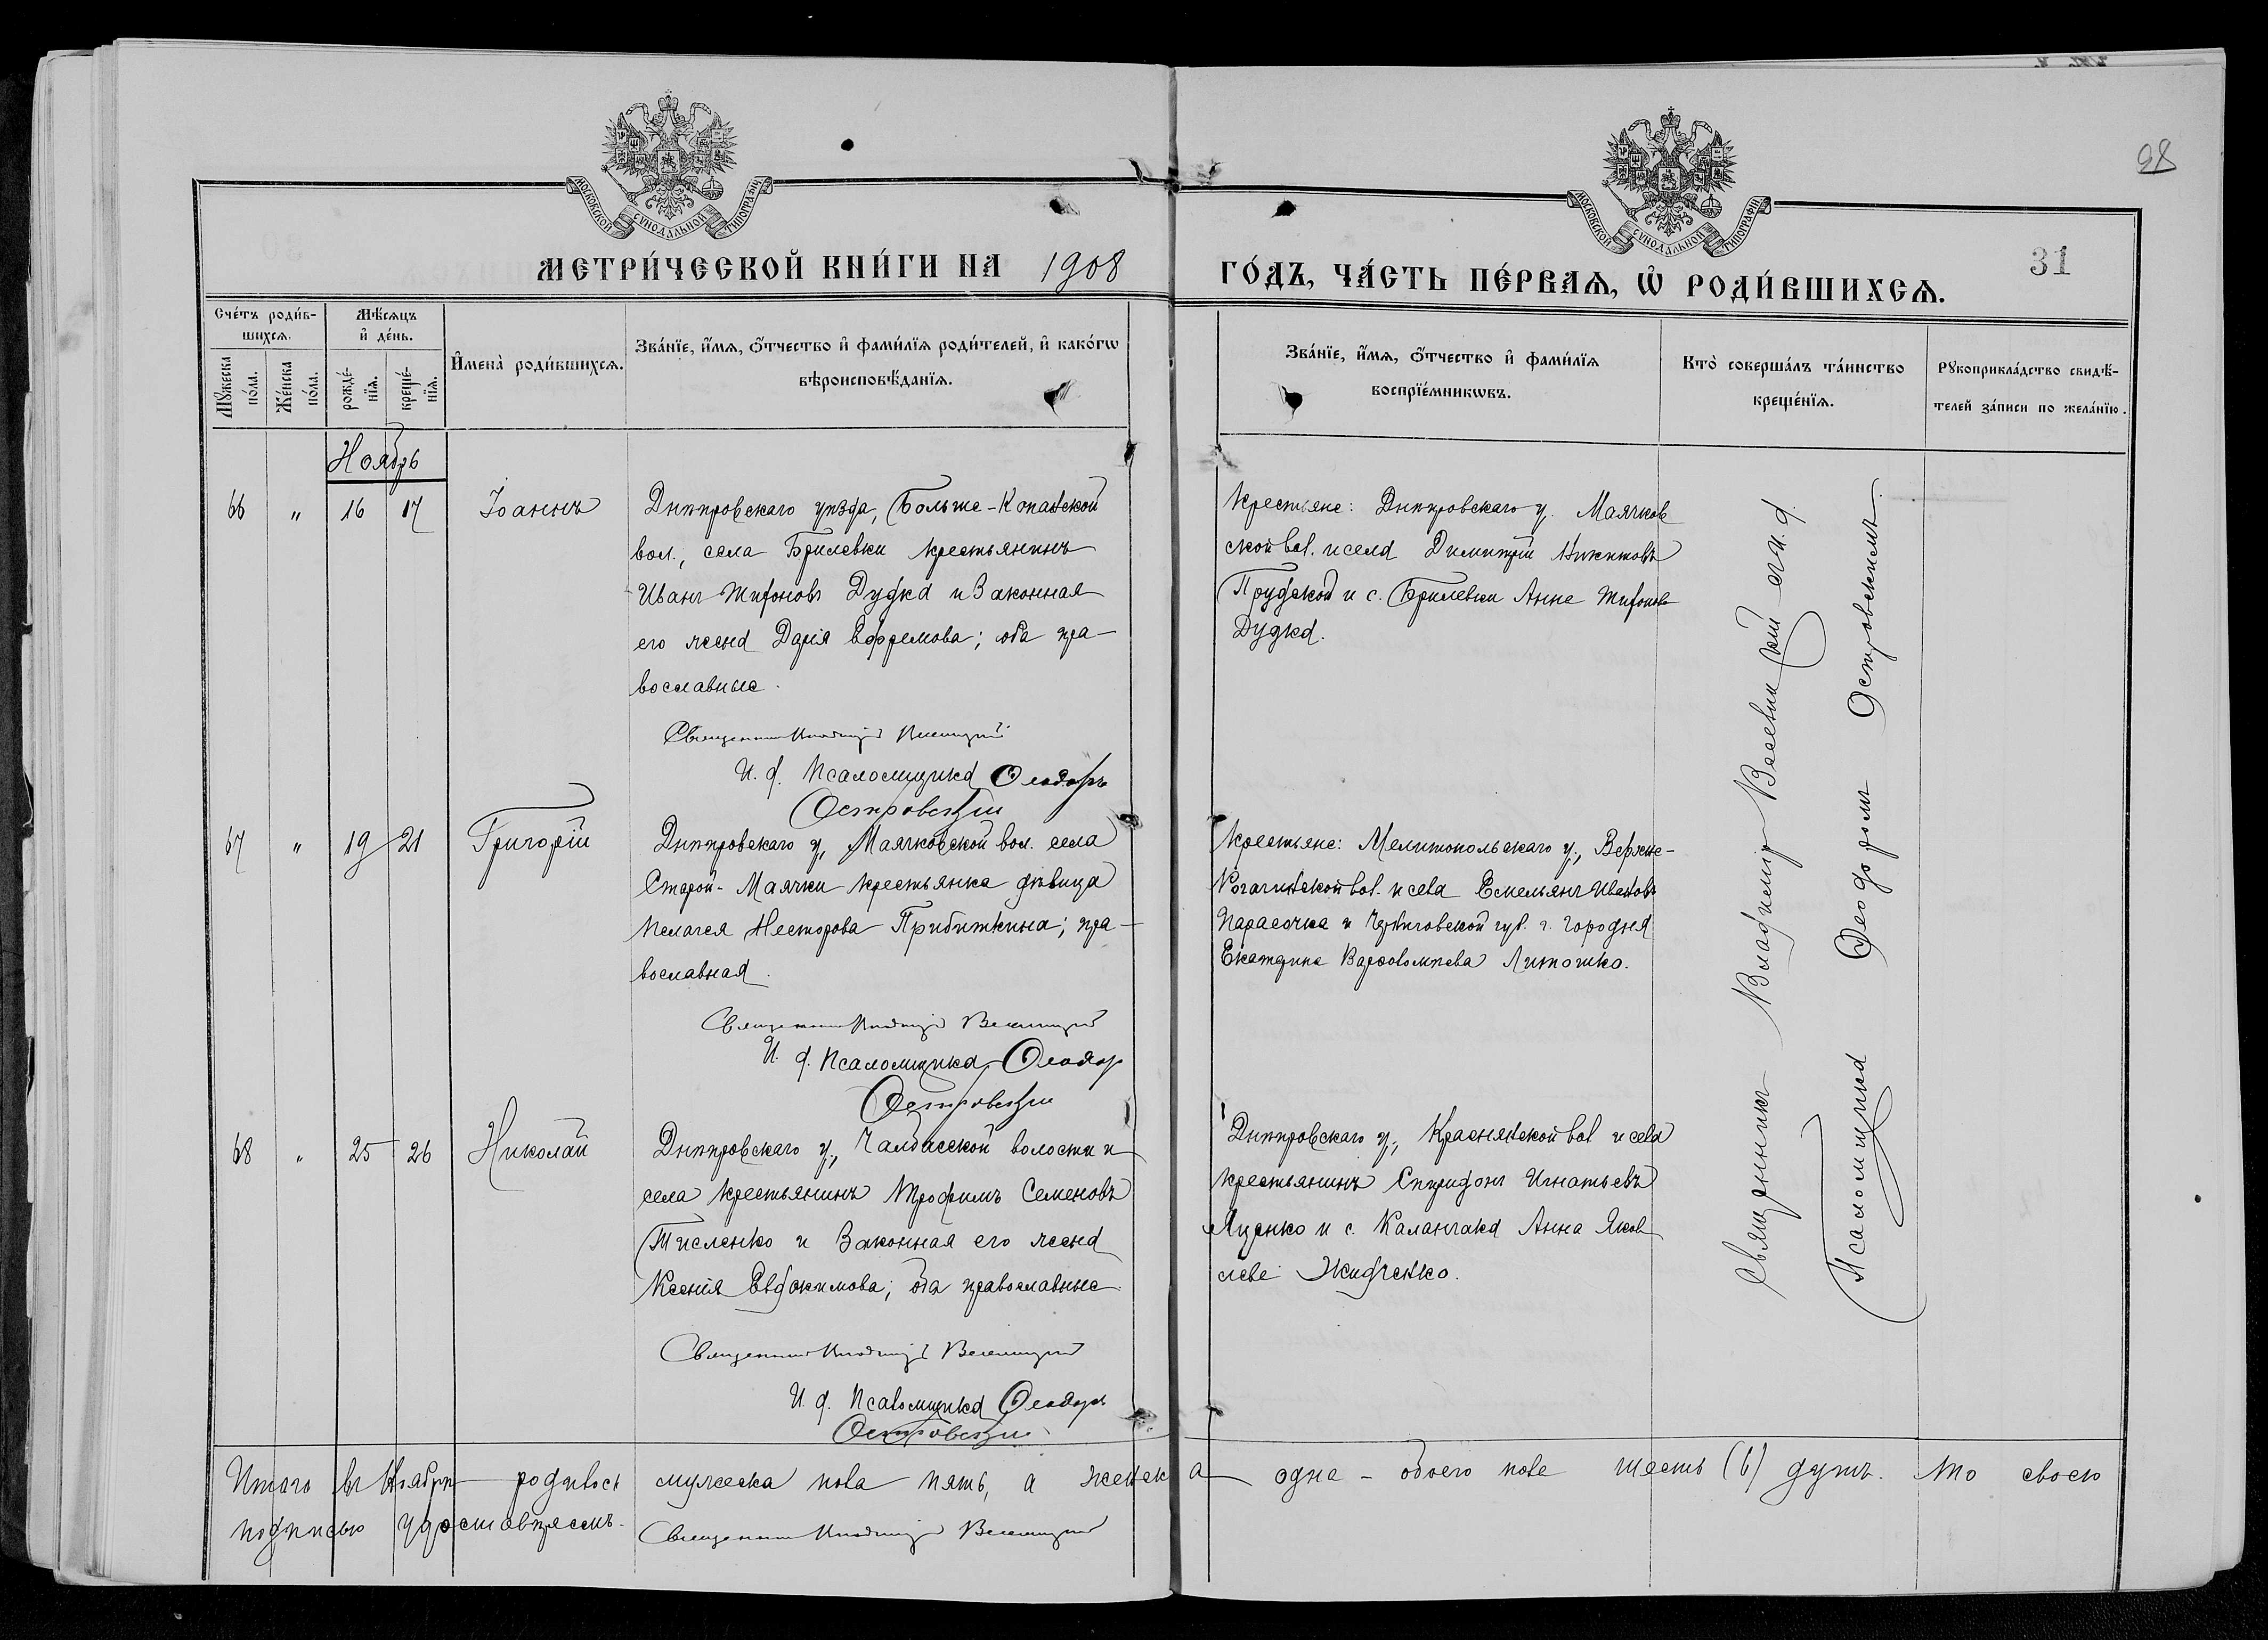 98
МОСКОВСКОЙ СУНОДАЛЬНОЙ ТИПОГРАФІИ
МОСКОВСКОЙ СУНОДАЛЬНОЙ ТИПОГРАФІИ
МЕТРИ́ЧЕСКОЙ КНИ́ГИ НА 1908
ГО́ДЪ, ЧА́СТЬ ПЕ́РВАѦ, Ѡ҆ РОДИ́ВШИХСѦ.
31
Сче́тъ роди́в-
шихсѧ.
Мꙋ́жеска по́ла.
Же́нска по́ла.
Мѣ́сѧцъ
и҆ де́нь.
рожде́-
нїѧ.
креще́-
нїѧ.
И҆мена̀ роди́вшихсѧ.
Зва́нїе, и҆́мѧ, ѻ҆́тчество и҆ фами́лїѧ роди́телей, и҆ како́гѡ
вѣроисповѣ́данїѧ.
Зва́нїе, и҆́мѧ, ѻ҆́тчество и҆ фами́лїѧ
воспрїе́мникѡвъ.
Кто̀ соверша́лъ та́инство
креще́нїѧ.
Рꙋкоприкла́дство свидѣ́-
телей за́писи по жела́нїю.
Ноябрь
66 " 16 17 Іоаннъ
Днѣпровскаго уѣзда, Больше-Копанской
вол., села Брилевки крестьянинъ
Иванъ Тифоновъ Дудка и законная
его жена Дарія Ефремова; оба пра-
вославные.
Священникъ Владиміръ
И. д. Псаломщика Ѳеодоръ
Островскій
Крестьяне: Днѣпровскаго у. Маячков
ской вол. и села Димитрій Никитовъ
Прудской и с. Брилевки Анна Тифонова
Дудка.
67 " 19 21 Григорій
Днѣпровскаго у., Маячковской вол. села
Старой-Маячки крестьянка дѣвица
Пелагея Несторова Прибиткина; пра-
вославная.
Священникъ Владиміръ
И. д. Псаломщика Ѳеодоръ
Островскій
Крестьяне: Мелитопольскаго у., Верхне-
Рогачикской вол. и села Емельянъ Ивановъ
Парасочка и Черниговской губ. г. Городня
Екатерина Варфоломѣева Литошко.
68 " 25 26 Николай
Днѣпровскаго у., Чалбасской волости и
села крестьянинъ Трофимъ Семеновъ
Тисленко и законная его жена
Ксенія Евдокимова; оба православные
Священникъ Владиміръ
И. д. Псаломщика Ѳеодоръ
Островскій
Днѣпровскаго у., Краснянской вол. и села
крестьянинъ Спиридонъ Игнатьевъ
Луценко и с. Каланчака Анна Яков
лева Жидченко.
Священникъ Владиміръ и. д.
Псаломщика Ѳеодоромъ Островскимъ.
Итого въ Ноябрѣ родилось мужеска пола пять, а женска одна - обоего пола шесть (6) душъ. Что своею
подписью удостовѣряемъ. Священникъ Владиміръ